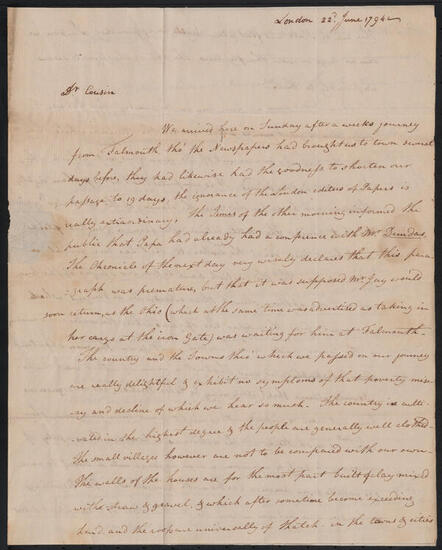 London 22d. June 1794
Dr Cousin
We arrived here on Sunday after a weeks journey
from Falmouth tho' the Newspapers had brought us to town several
days before, they had likewise had the goodness to shorten our
passage to 19 days, the ignorance of the London editors of Papers is
really extraordinary. The Times of the other morning informed the
public that Papa had already had a conference with Mr. Dundas.
The Chronicle of the next day very wisely declared that this para-
graph was premature, but that it was supposed Mr. Jay would
soon return, as the Ohio (which at the same time was advertised as taking in
her cargo at the iron Gate) was waiting for him at Falmouth.
The country and the Towns thro' which we passed on our journey
are really delightful & exhibit no symptoms of that poverty mise-
ry and decline of which we hear so much. The country is culti-
vated in the highest degree & the people are generally well clothed.
The small villages however are not to be compared with our own.
The walls of the houses are for the most part built of clay mixed
with straw & gravel, & which after sometime become exceeding
hard, and the roofs are universally of thatch. in the towns & cities